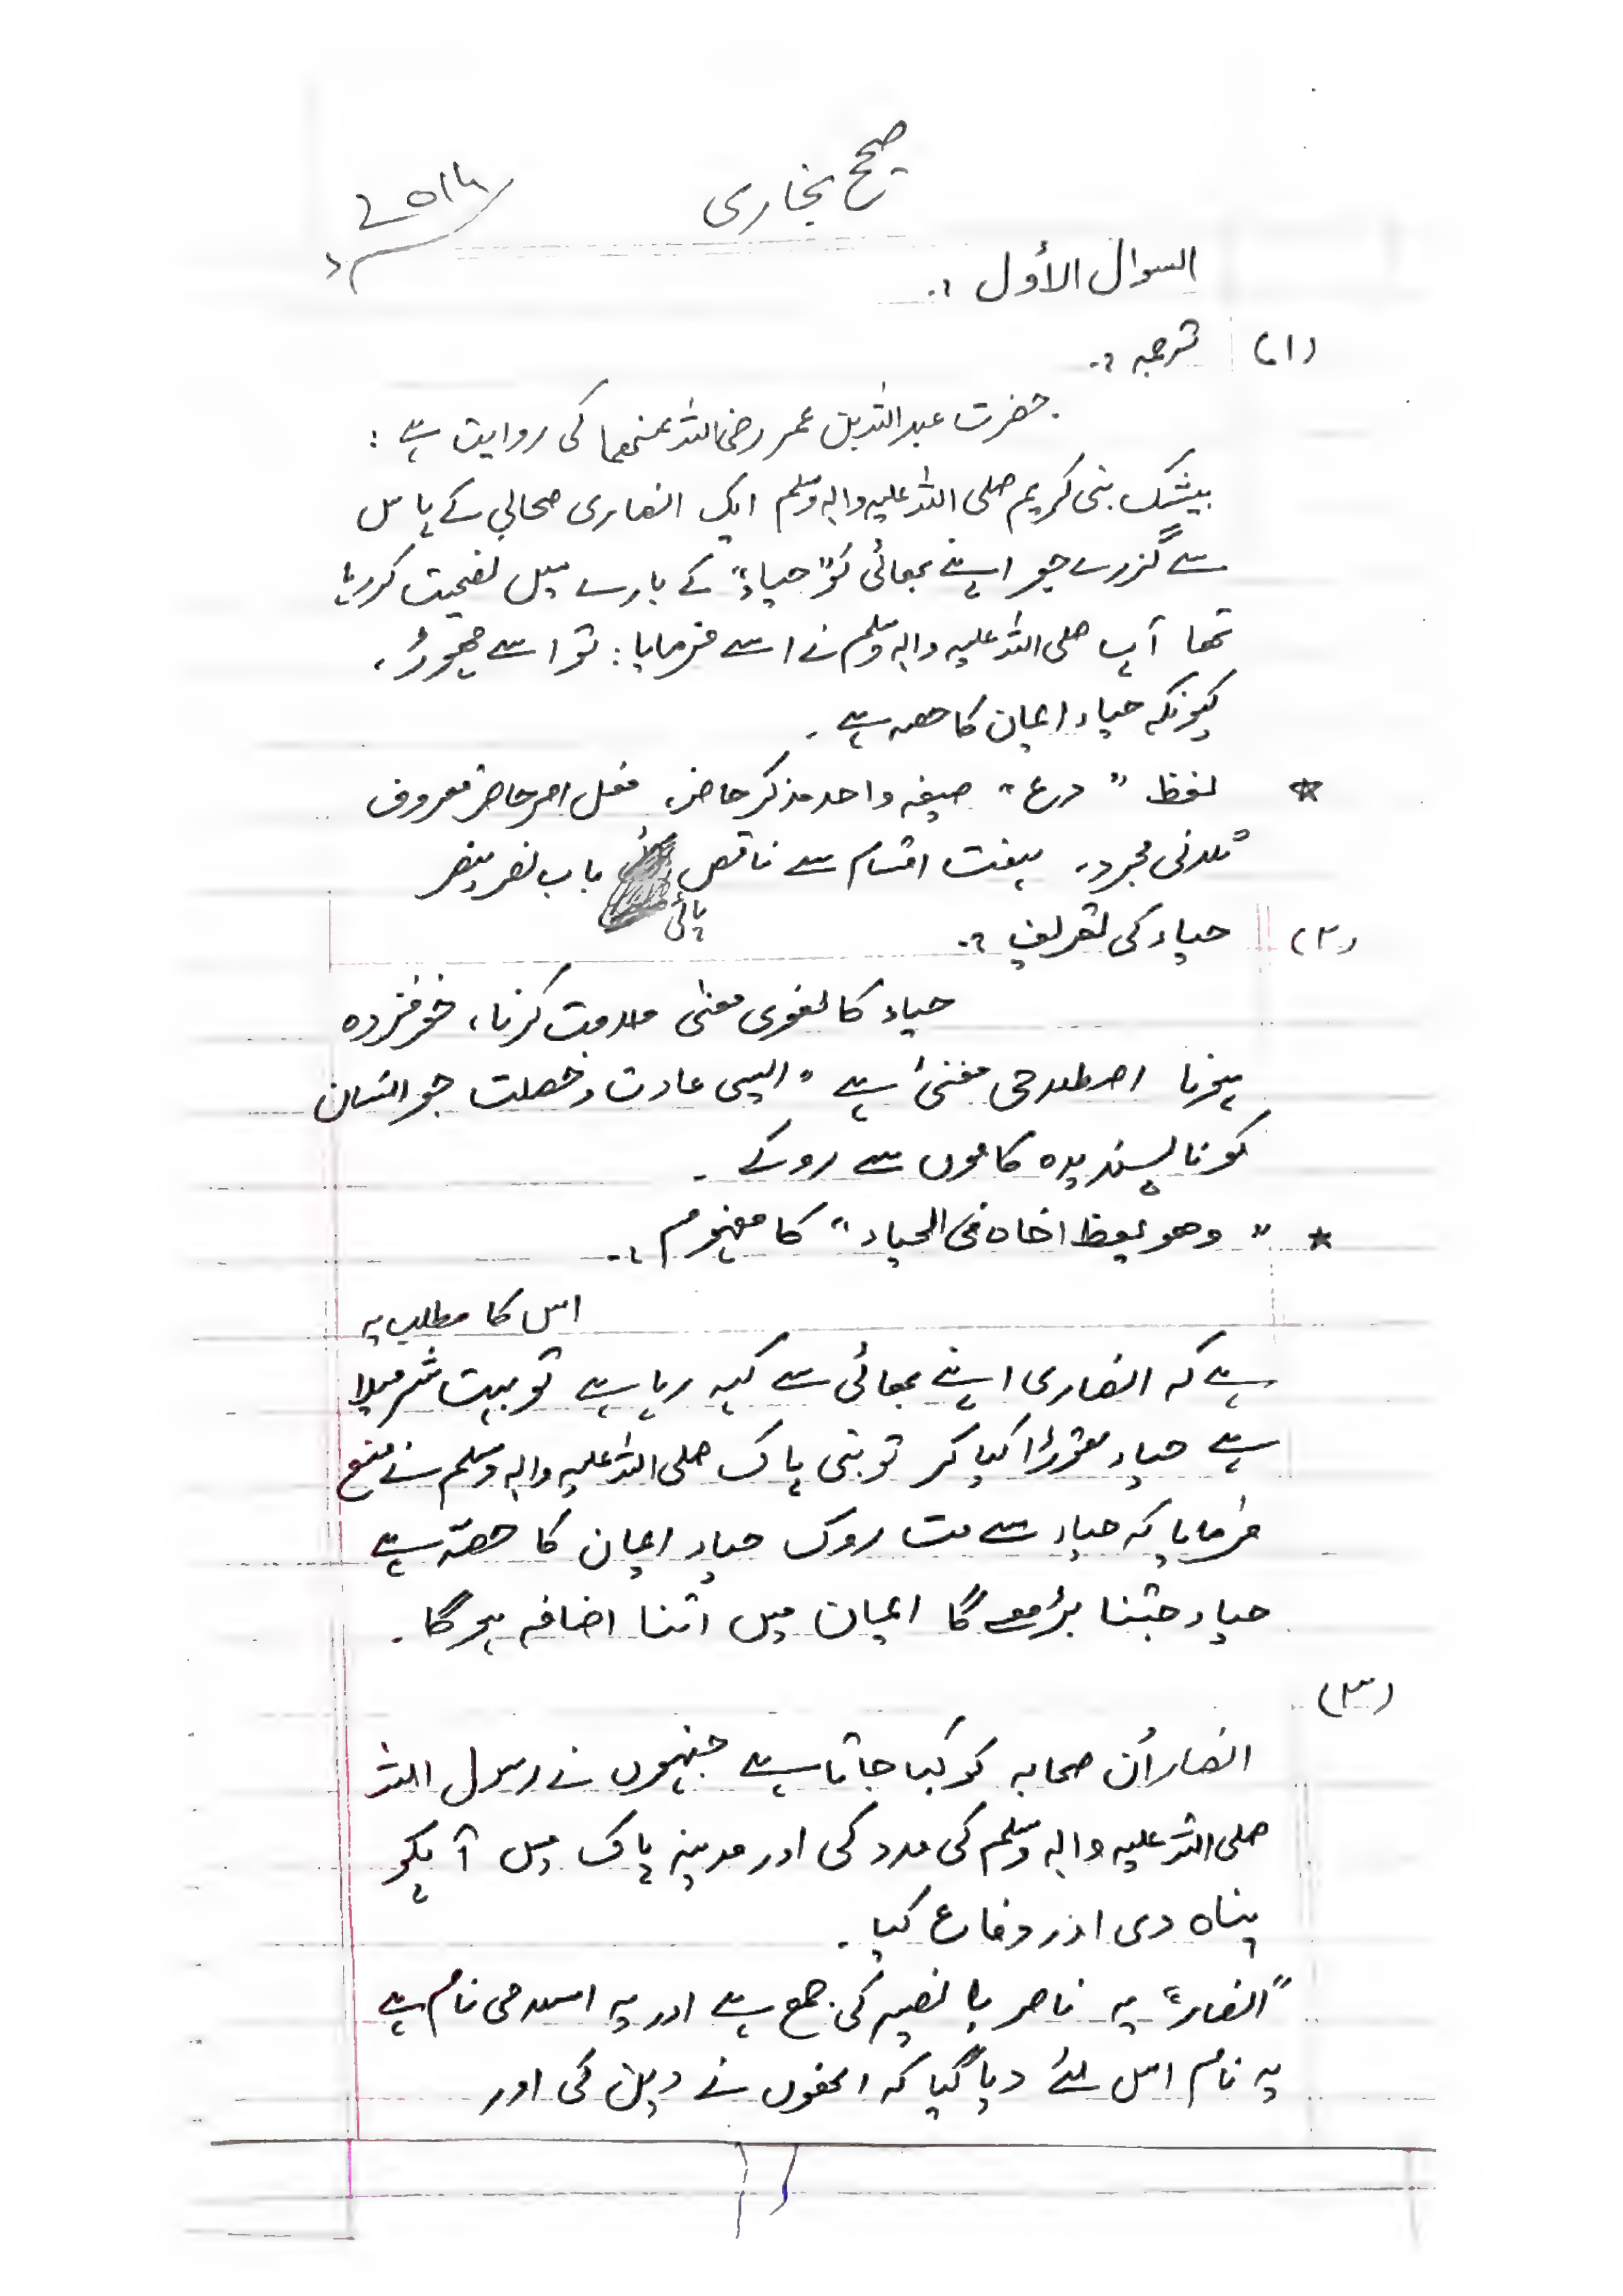 صحیح بخاری
2014
السوال الأول :.
(۱) ترجمہ :.
حضرت عبداللہ بن عمر رضی اللہ عنھما کی روایت ہے :
بیشک نبی کریم صلی اللہ علیہ والہ وسلم ایک انصاری صحابی کے پاس
سے گزرے جو اپنے بھائی کو "حیاء" کے بارے میں نصیحت کر رہا
تھا آپ صلی اللہ علیہ والہ وسلم نے اسے فرمایا : تو اسے چھوڑ،
کیونکہ حیاء ایمان کا حصہ ہے ۔
* لفظ "درع" صیغہ واحد مذکر حاضر، فعل امر حاضر معروف
ثلاثی مجرد، ہفت اقسام سے ناقص یائی باب نصر ینصر
(۲) حیاء کی تعریف :.
حیاء کا لغوی معنی ملامت کرنا، خوفزدہ
ہونا اصطلاحی معنیٰ ہے "ایسی عادت و خصلت جو انسان
کو ناپسندیدہ کاموں سے روکے ۔
* "وھو یعظ اخاہ فی الحیاء" کا مفہوم :.
اس کا مطلب یہ
ہے کہ انصاری اپنے بھائی سے کہہ رہا ہے تو بہت شرمیلا
ہے حیاء تھوڑا کیا کر تو نبی پاک صلی اللہ علیہ والہ وسلم نے منع
فرمایا کہ حیاء سے مت روک حیاء ایمان کا حصہ ہے
حیاء جتنا بڑھے گا ایمان میں اتنا اضافہ ہوگا ۔
(۳)
انصار اُن صحابہ کو کہا جاتا ہے جنہوں نے رسول اللہ
صلی اللہ علیہ والہ وسلم کی مدد کی اور مدینہ پاک میں آپکو
پناہ دی اور دفاع کیا ۔
"انصار" یہ ناصر یا نصیر کی جمع ہے اور یہ اسلامی نام ہے
یہ نام اس لئے دیا گیا کہ انھوں نے دین کی اور